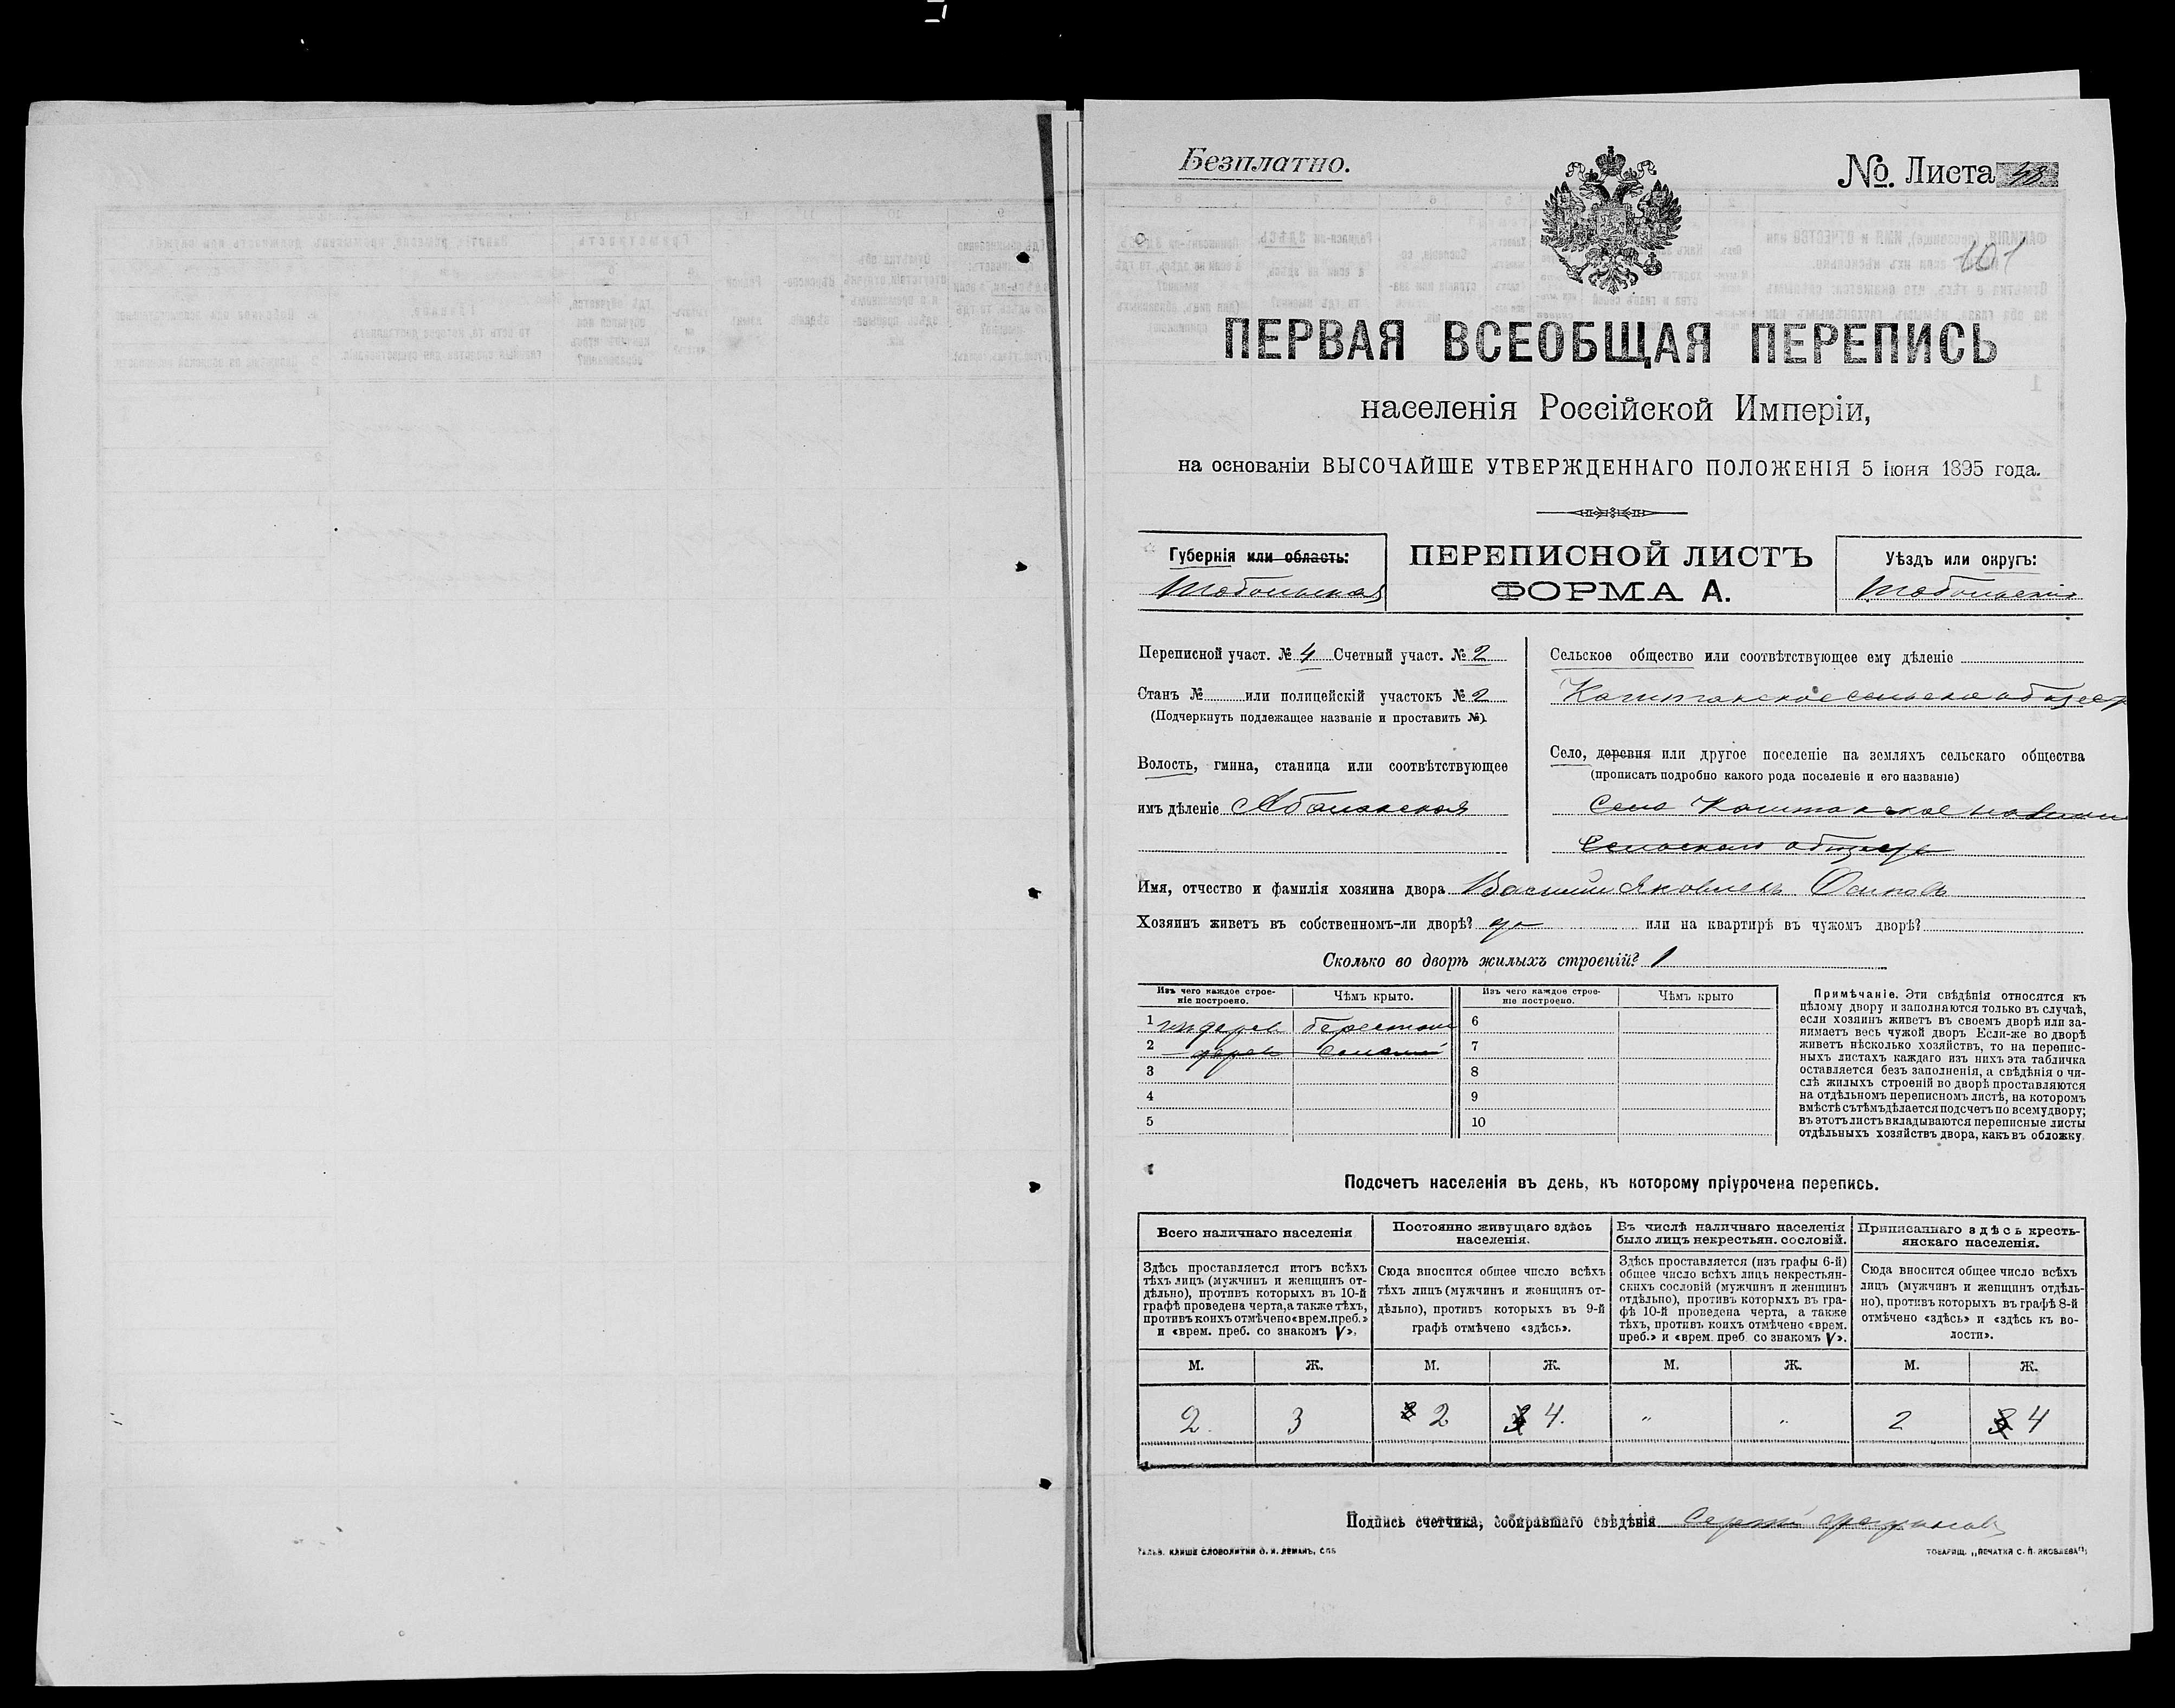 Безплатно.
№. Листа 48
101
ПЕРВАЯ ВСЕОБЩАЯ ПЕРЕПИСЬ
населенія Россійской Имперіи,
на основаніи ВЫСОЧАЙШЕ УТВЕРЖДЕННАГО ПОЛОЖЕНІЯ 5 Іюня 1895 года.
Губернія или область:
Тобольская
ПЕРЕПИСНОЙ ЛИСТЪ
ФОРМА А.
Уѣздъ или округъ:
Тобольскій
Переписной участ. № 4 Счетный участ. № 2
Станъ № или полицейскій участокъ № 2
(Подчеркнуть подлежащее названіе и проставить №)
Волость, гмина, станица или соотвѣтствующее
имъ дѣленіе Абалакская
Сельское общество или соотвѣтствующее ему дѣленіе
Село, деревня или другое поселеніе на земляхъ сельскаго общества
(прописать подробно какого рода поселеніе и его названіе)
Село
Имя, отчество и фамилія хозяина двора Василій Яковлевъ Осиповъ
Хозяинъ живетъ въ собственномъ-ли дворѣ? да или на квартирѣ въ чужомъ дворѣ?
Сколько во дворѣ жилыхъ строеній? 1
Изъ чего каждое строе-
ніе построено.
Чѣмъ крыто.
Изъ чего каждое строе-
ніе построено.
Чѣмъ крыто
1 изъ дерев берестою 6
2 дерев 7
3 8
4 9
5 10
Примѣчаніе. Эти свѣдѣнія относятся къ
цѣлому двору и заполняются только въ случаѣ,
если хозяинъ живетъ въ своемъ дворѣ или за-
нимаетъ весь чужой дворъ Если-же во дворѣ
живетъ нѣсколько хозяйствъ, то на перепис-
ныхъ листахъ каждаго изъ нихъ эта табличка
оставляется безъ заполненія, а свѣдѣнія о чи-
слѣ жилыхъ строеній во дворѣ проставляются
на отдѣльномъ переписномъ листѣ, на которомъ
вмѣстѣ съ тѣмъ дѣлается подсчетъ по всему двору;
въ этотъ листъ вкладываются переписные листы
отдѣльныхъ хозяйствъ двора, какъ въ обложку.
Подсчетъ населенія въ день, къ которому пріурочена перепись.
Всего наличнаго населенія
Здѣсь проставляется итогъ всѣхъ
тѣхъ лицъ (мужчинъ и женщинъ от-
дѣльно), противъ которыхъ въ 10-й
графѣ проведена черта, а также тѣхъ,
противъ коихъ отмѣчено «врем. преб.»
и «врем. преб. со знакомъ V».
Постоянно живущаго здѣсь
населенія.
Сюда вносится общее число всѣхъ
тѣхъ лицъ (мужчинъ и женщинъ от-
дѣльно), противъ которыхъ въ 9-й
графѣ отмѣчено «здѣсь».
Въ числѣ наличнаго населенія
было лицъ некрестьян. сословій.
Здѣсь проставляется (изъ графы 6-й)
общее число всѣхъ лицъ некрестьян-
скихъ сословій (мужчинъ и женщинъ
отдѣльно), противъ которыхъ въ гра-
фѣ 10-й проведена черта, а также
тѣхъ, противъ коихъ отмѣчено «врем.
преб.» и «врем. преб. со знакомъ V».
Приписаннаго здѣсь кресть-
янскаго населенія.
Сюда вносится общее число всѣхъ
лицъ (мужчинъ и женщинъ отдѣль-
но), противъ которыхъ въ графѣ 8-й
отмѣчено «здѣсь» и «здѣсь къ во-
лости».
М. Ж. М. Ж. М. Ж. М. Ж.
2. 3 2 4. " " 2 4
Подпись счетчика, собиравшаго свѣдѣнія Сергѣй
ГАЛЬВ. КЛИШЕ СЛОВОЛИТНИ О. И. ЛЕМАНЪ, СПБ
ТОВАРИЩ. „ПЕЧАТНЯ С. П. ЯКОВЛЕВА"